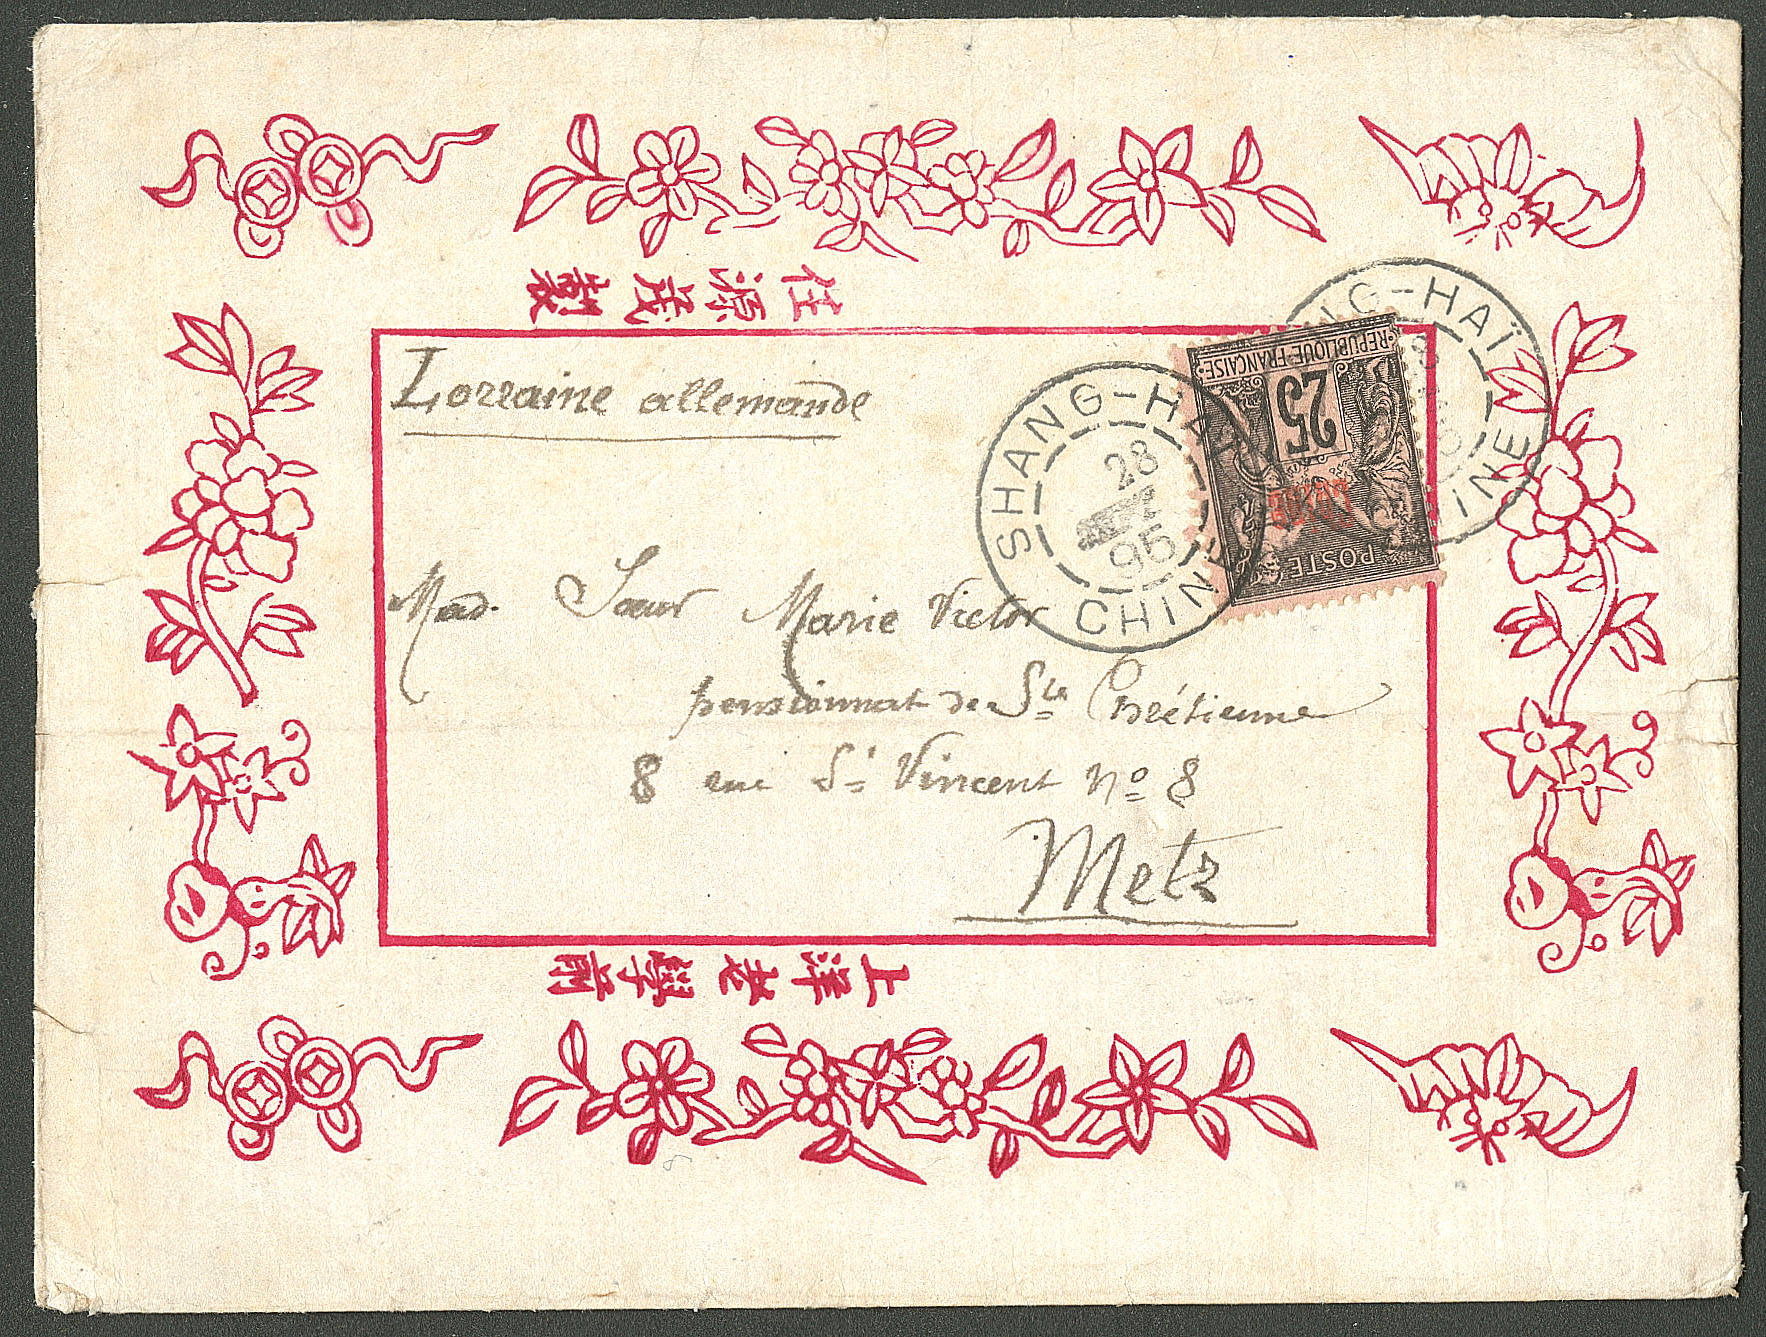 源茂製
Lorraine allemande
SHANG-HAÏ
28
95
CHINE
SHANG-HAÏ
CHINE
·REPUBLIQUE·FRANÇAISE·
25
Chine
POSTE
Mad. Sœur Marie Victor
pensionnat de Ste Chrétienne
8 rue St Vincent No 8
Metz
上洋老學前